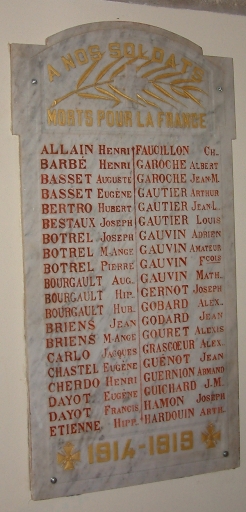 A NOS SOLDATS
MORTS POUR LA FRANCE
ALLAIN HENRI
BARBÉ HENRI
BASSET AUGUSTE
BASSET EUGÈNE
BERTRO HUBERT
BESTAUX JOSEPH
BOTREL JOSEPH
BOTREL M.ANGE
BOTREL PIERRE
BOURGAULT AUG.
BOURGAULT HIP.
BOURGAULT HUB.
BRIENS JEAN
BRIENS M-ANGE
CARLO JACQUES
CHASTEL EUGÈNE
CHERDO HENRI
DAYOT EUGÈNE
DAYOT FRANCIS
ETIENNE HIPP.
FAUCILLON CH.
GAROCHE ALBERT
GAROCHE JEAN-M.
GAUTIER ARTHUR
GAUTIER JEAN-L.
GAUTIER LOUIS
GAUVIN ADRIEN
GAUVIN AMATEUR
GAUVIN FÇOIS
GAUVIN MATH.
GERNOT JOSEPH
GOBARD ALEX.
GODARD JEAN
GOURET ALEXIS
GRASCOEUR ALEX.
GUÉNOT JEAN
GUERNION ARMAND
GUICHARD J.M.
HAMON JOSEPH
HARDOUIN ARTH.
1914-1919